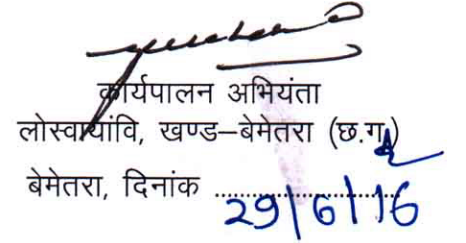 कार्यपालन अभियंता
लोस्वायांवि, खण्ड–बेमेतरा (छ.ग.)
बेमेतरा, दिनांक ..................... 29/6/16